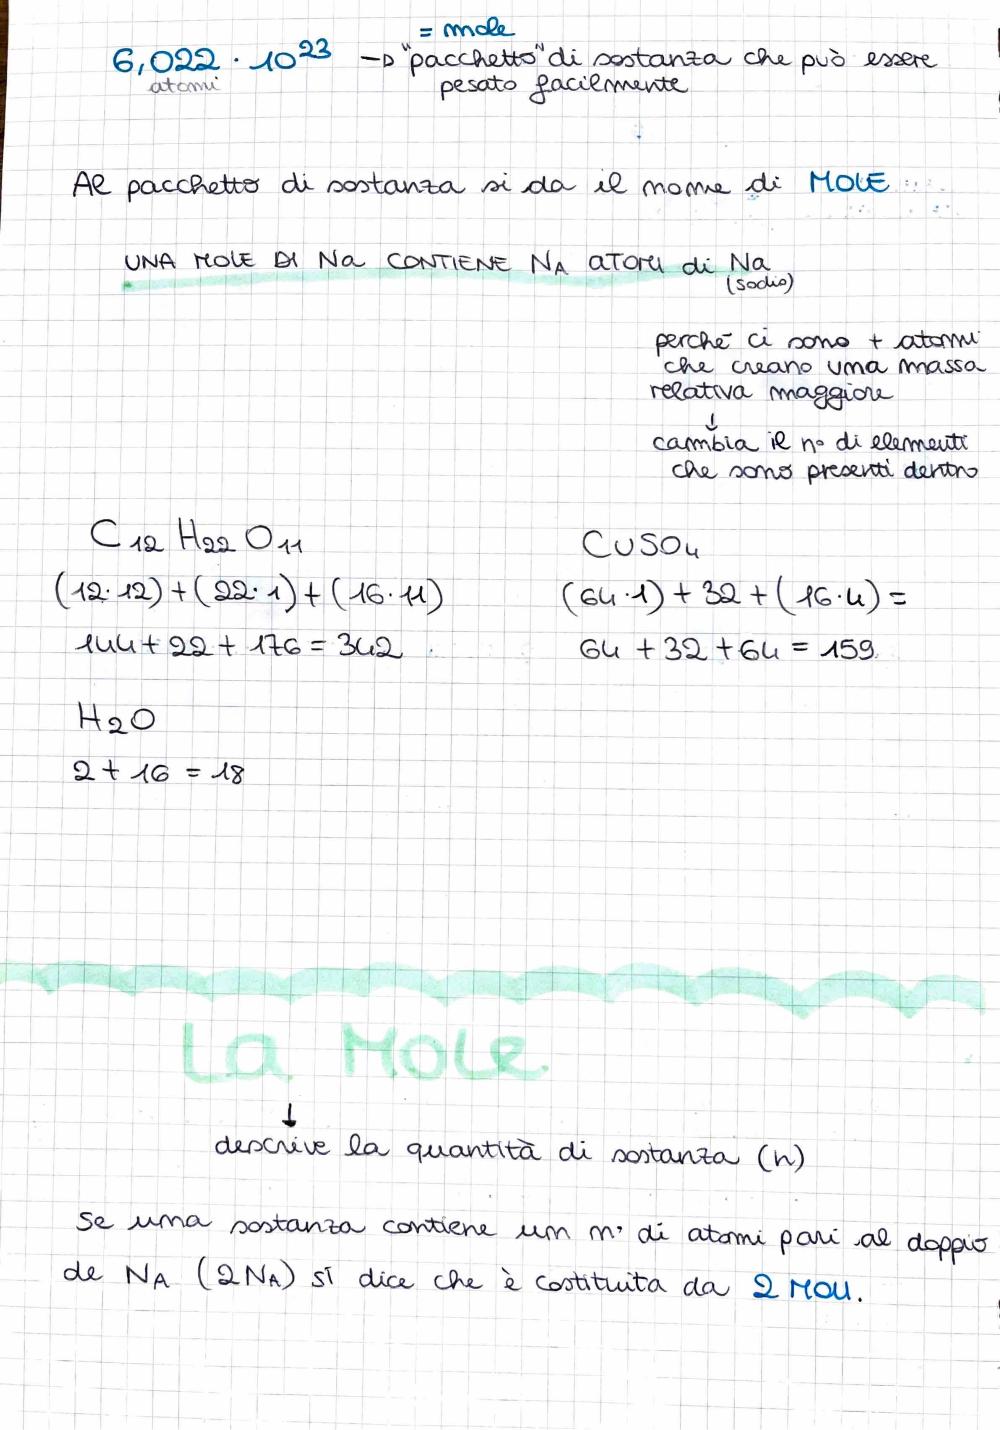 = mole
6,022 · 10²³ → "pacchetto" di sostanza che può essere
atomi pesato facilmente
Al pacchetto di sostanza si da il nome di MOLE
UNA MOLE DI Na CONTIENE NA ATOMI di Na
(sodio)
perché ci sono + atomi
che creano una massa
relativa maggiore
↓
cambia il n° di elementi
che sono presenti dentro
C12 H22 O11 CuSO4
(12·12)+(22·1)+(16·11) (64·1)+32+(16·4)=
144+22+176=342 64+32+64=159
H2O
2+16=18
La MOLE
↓
descrive la quantità di sostanza (n)
Se una sostanza contiene un n° di atomi pari al doppio
de NA (2NA) si dice che è costituita da 2 MOLI.